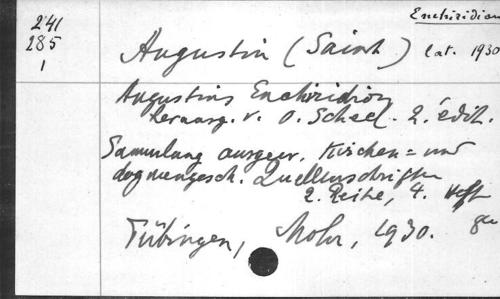 Enchiridion
241
285
1
Augustin (Saint) lat. 1930
Augustins Enchiridion
herausg. v. O. Scheel. 2. édit.
Sammlung ausgew. Kirchen= und
dogmengesch. Quellenschriften
2. Reihe, 4. Heft
Tübingen, Mohr, 1930.